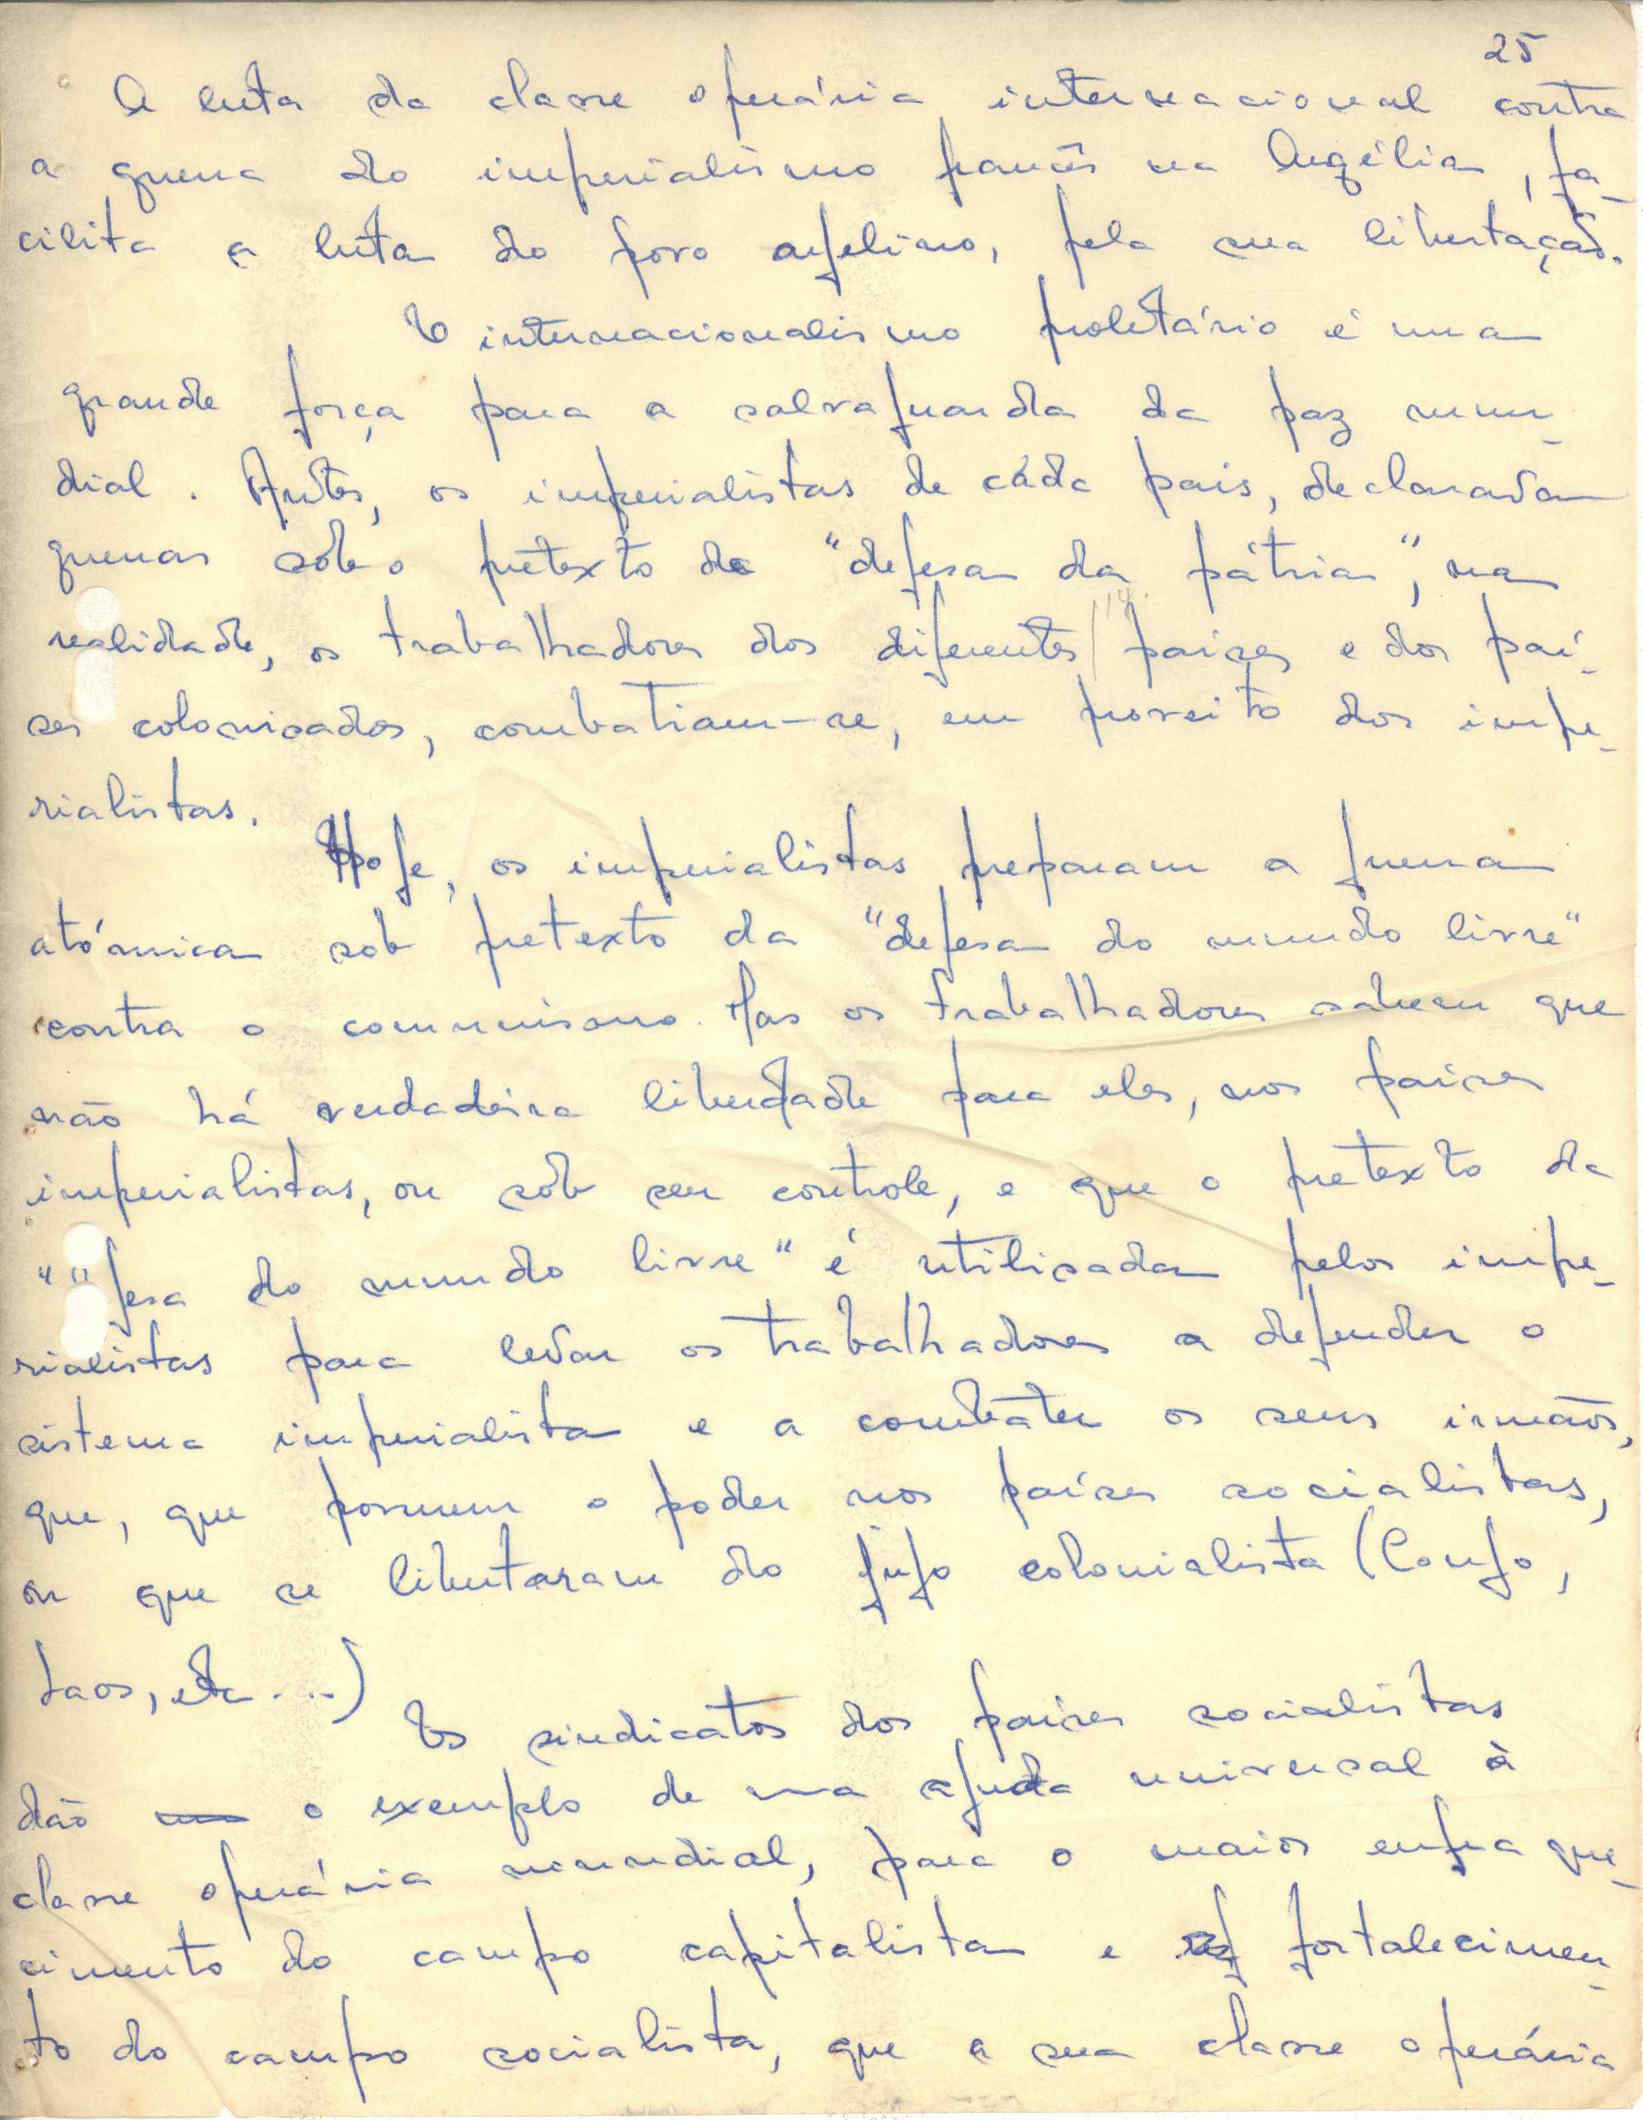 25
A luta da classe operária internacional contra
a guerra do imperialismo francês na Argélia, fa-
cilita a luta do povo argelino, pela sua libertação.
O internacionalismo proletário é uma
grande força para a salvaguarda da paz mun-
dial. Antes, os imperialistas de cáda pais, declaravam
guerras sôb o pretexto de "defesa da pátria", na
realidade, os trabalhadores dos diferentes paises e dos paí-
ses colonisados, combatiam-se, em proveito dos impe-
rialistas.
Hoje, os imperialistas preparam a guerra
atómica sob pretexto da "defesa do mundo livre"
contra o comunismo. Mas os trabalhadores sabem que
não há verdadeira liberdade para eles, nos paises
imperialistas, ou sôb seu controle, e que o pretexto da
" "fesa do mundo livre" é utilisada pelos impe-
rialistas para levar os trabalhadores a defender o
sistema imperialista e a combater os seus irmãos,
que, que possuem o poder nos países socialistas,
ou que se libertaram do jugo colonialista (Congo,
Laos, etc...)
Os sindicatos dos paises socialistas
dão o exemplo de uma ajuda universal à
classe operária mundial, para o maior enfraque-
cimento do campo capitalista e fortalecimen-
to do campo socialista, que a sua classe operária